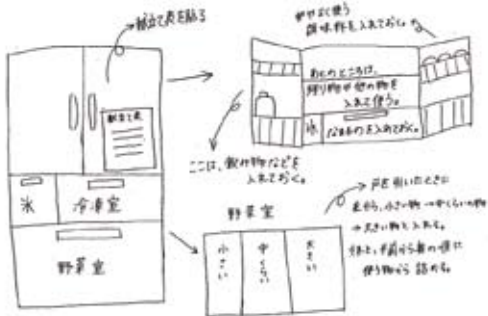 献立て表を貼る
献立て表
氷
冷凍室
野菜室
よく使う
調味料を入れておく。
あとのところは、
残り物や他の物を
入れて使う。
氷
なまものを入れておく。
ここは、飲み物などを
入れておく。
野菜室
小さい
中くらい
大きい
戸を引いたときに
左から、小さい物→中くらいの物
→大きい物と入れる。
手前から奥の順に
使う物から詰める。